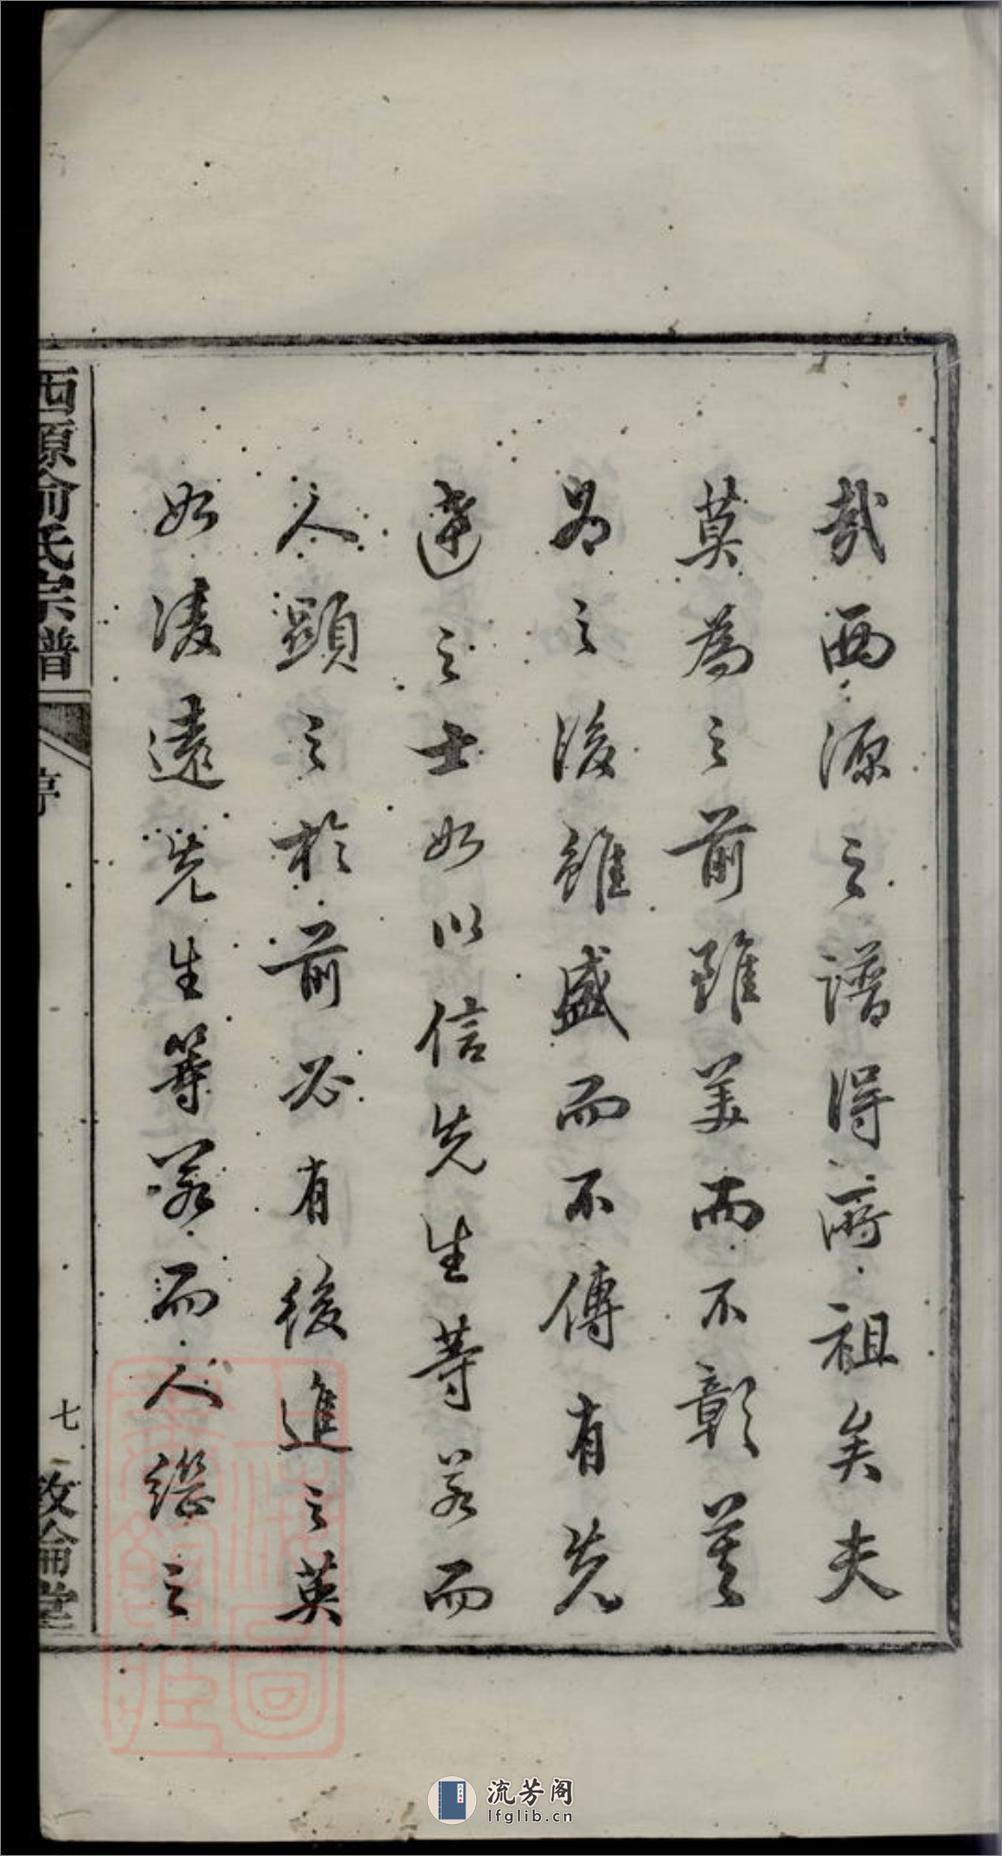 哉西源之譜得所祖矣夫
莫為之前雖美而不彰莫
為之後雖盛而不傳有先
達之士如以信先生等若而
人顯之於前必有後進之英
如凌遠先生等若而人繼之
西源俞氏宗譜
序
七
敦倫堂
流芳阁
lfglib.cn